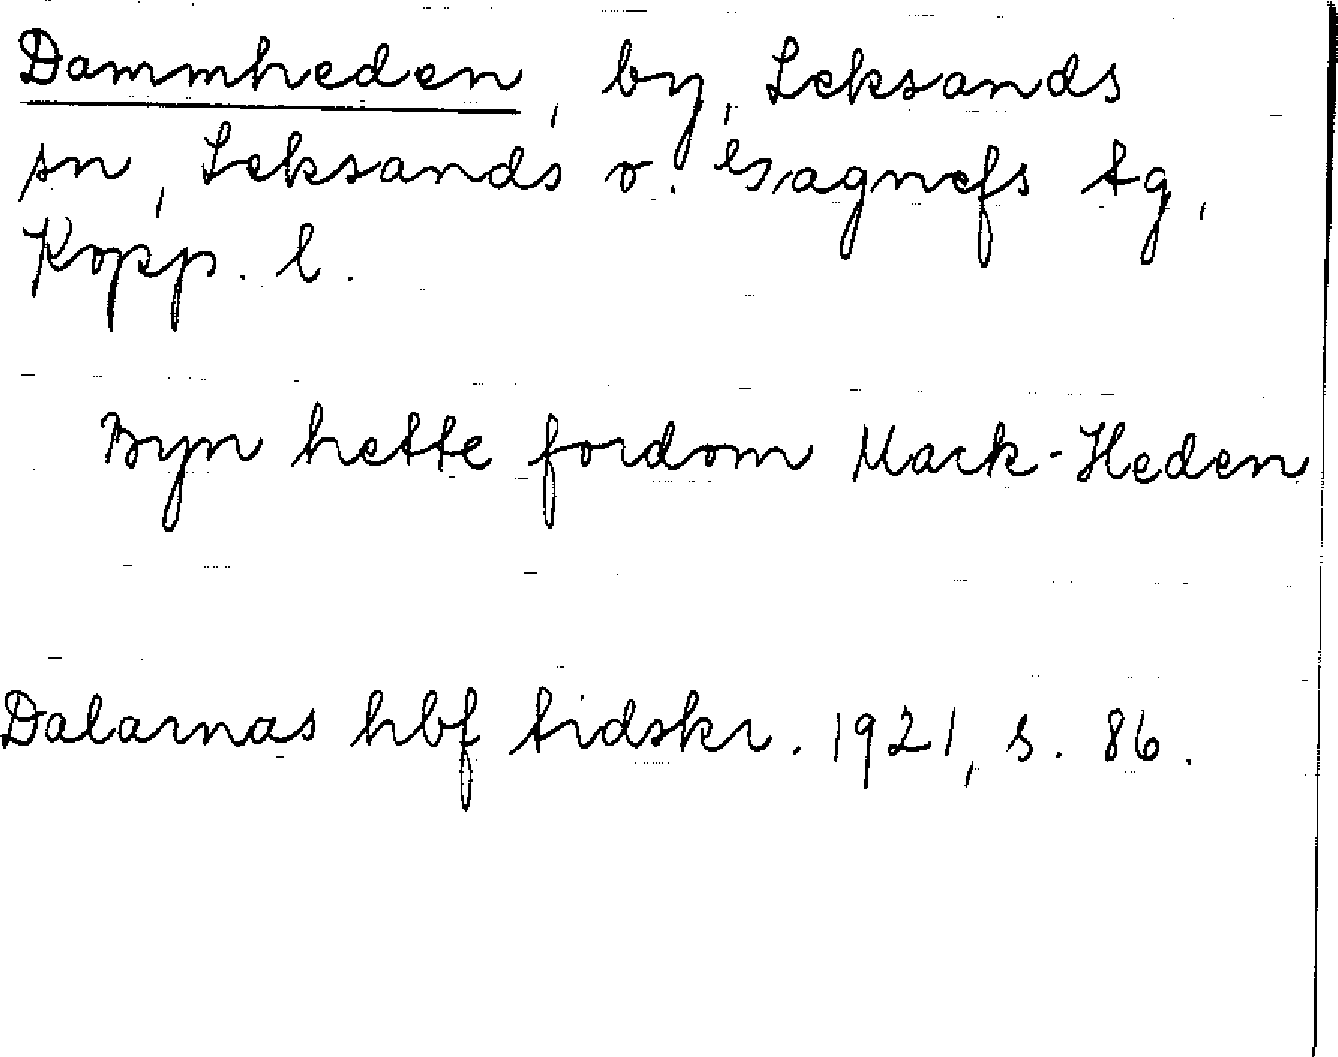 Dammheden, by, Leksands
sn, Leksands o. Gagnefs tg,
Kopp. l.
Byn hette fordom Mark-Heden
Dalarnas hbf tidskr. 1921, s. 86.